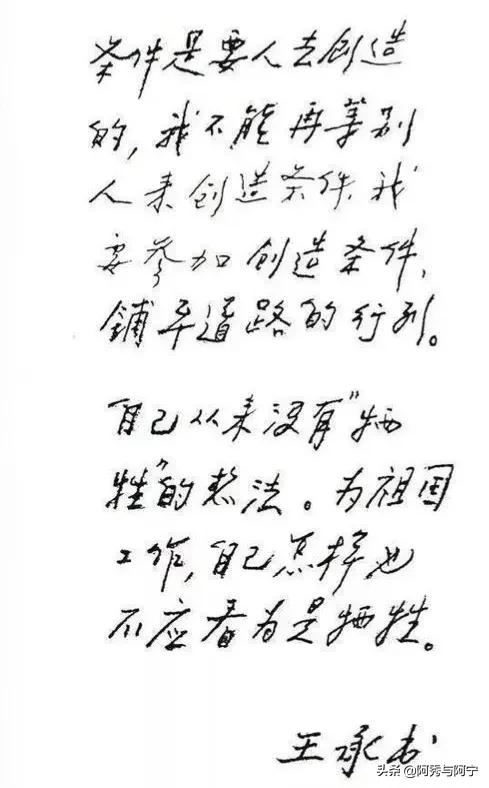 条件是要人去创造
的，我不能再等别
人来创造条件，我
要参加创造条件，
铺平道路的行列。
自己从来没有“牺
牲”的想法。为祖国
工作，自己怎样也
不应看为是牺牲。
王承书
头条 @阿秀与阿宁